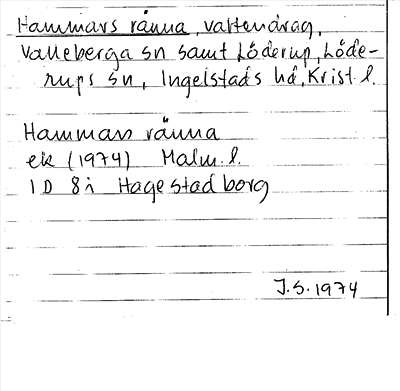 Hammars ränna, vattendrag,
Valleberga sn samt Löderup, Löde-
rups sn, Ingelstads hd, Krist. l.
Hammars ränna
ek (1974) Malm. l.
1D 8i Hagestadborg
J.S. 1974